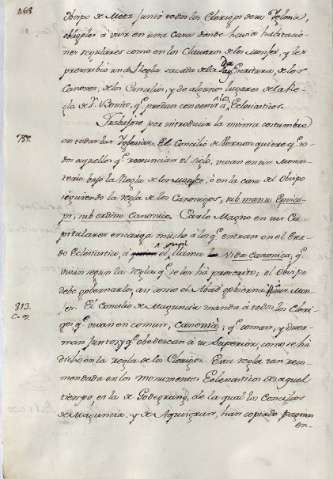 763.
Obispo de Metz juntó todos los Clerigos de su Iglesia,
obligólos à vivir en una Casa donde havia habitacio-
nes regulares como en los Claustros de los Monjes, y les
prescribió una Regla sacada de la Sagrada Escritura, de los
Canones, de los Concilios, y de algunos lugares de la Re-
gla de Sn. Benito, que podian convenir à los Eclesiasticos.
Trabajose por introducir la misma costumbre
755.
en todas las Iglesias. El Concilio de Vernon quiere que to-
dos aquellos que renuncian el siglo, vivan en un Monas-
terio bajo la Regla de los Monjes, ò en la casa del Obispo
siguiendo la regla de los Canonigos, sub manu Episco-
pi, sub ordine Canonico. Carlo Magno en sus Ca-
pitulares encarga mucho à los que entran en el Esta-
do Eclesiastico, à el que llama Vida Canonica, que
vivan segun la Regla que se les há prescrito; el Obispo
debe gobernarlos, asi como el Abad gobierna sus Mon-
813.
C. 9.
jes. El Concilio de Maguncia manda à todos los Cleri-
gos que vivan en comun, Canonica, que coman, y duer-
man juntos, y que obedezcan à su Superior, como se há
dicho en la Regla de los Clerigos. Esta Regla tan reco-
mendada en los monumentos Eclesiasticos de aquel
tiempo, era la de Godegrang, de la qual los Concilios
de Maguncia, y de Aquisgran, han copiado fragmen-